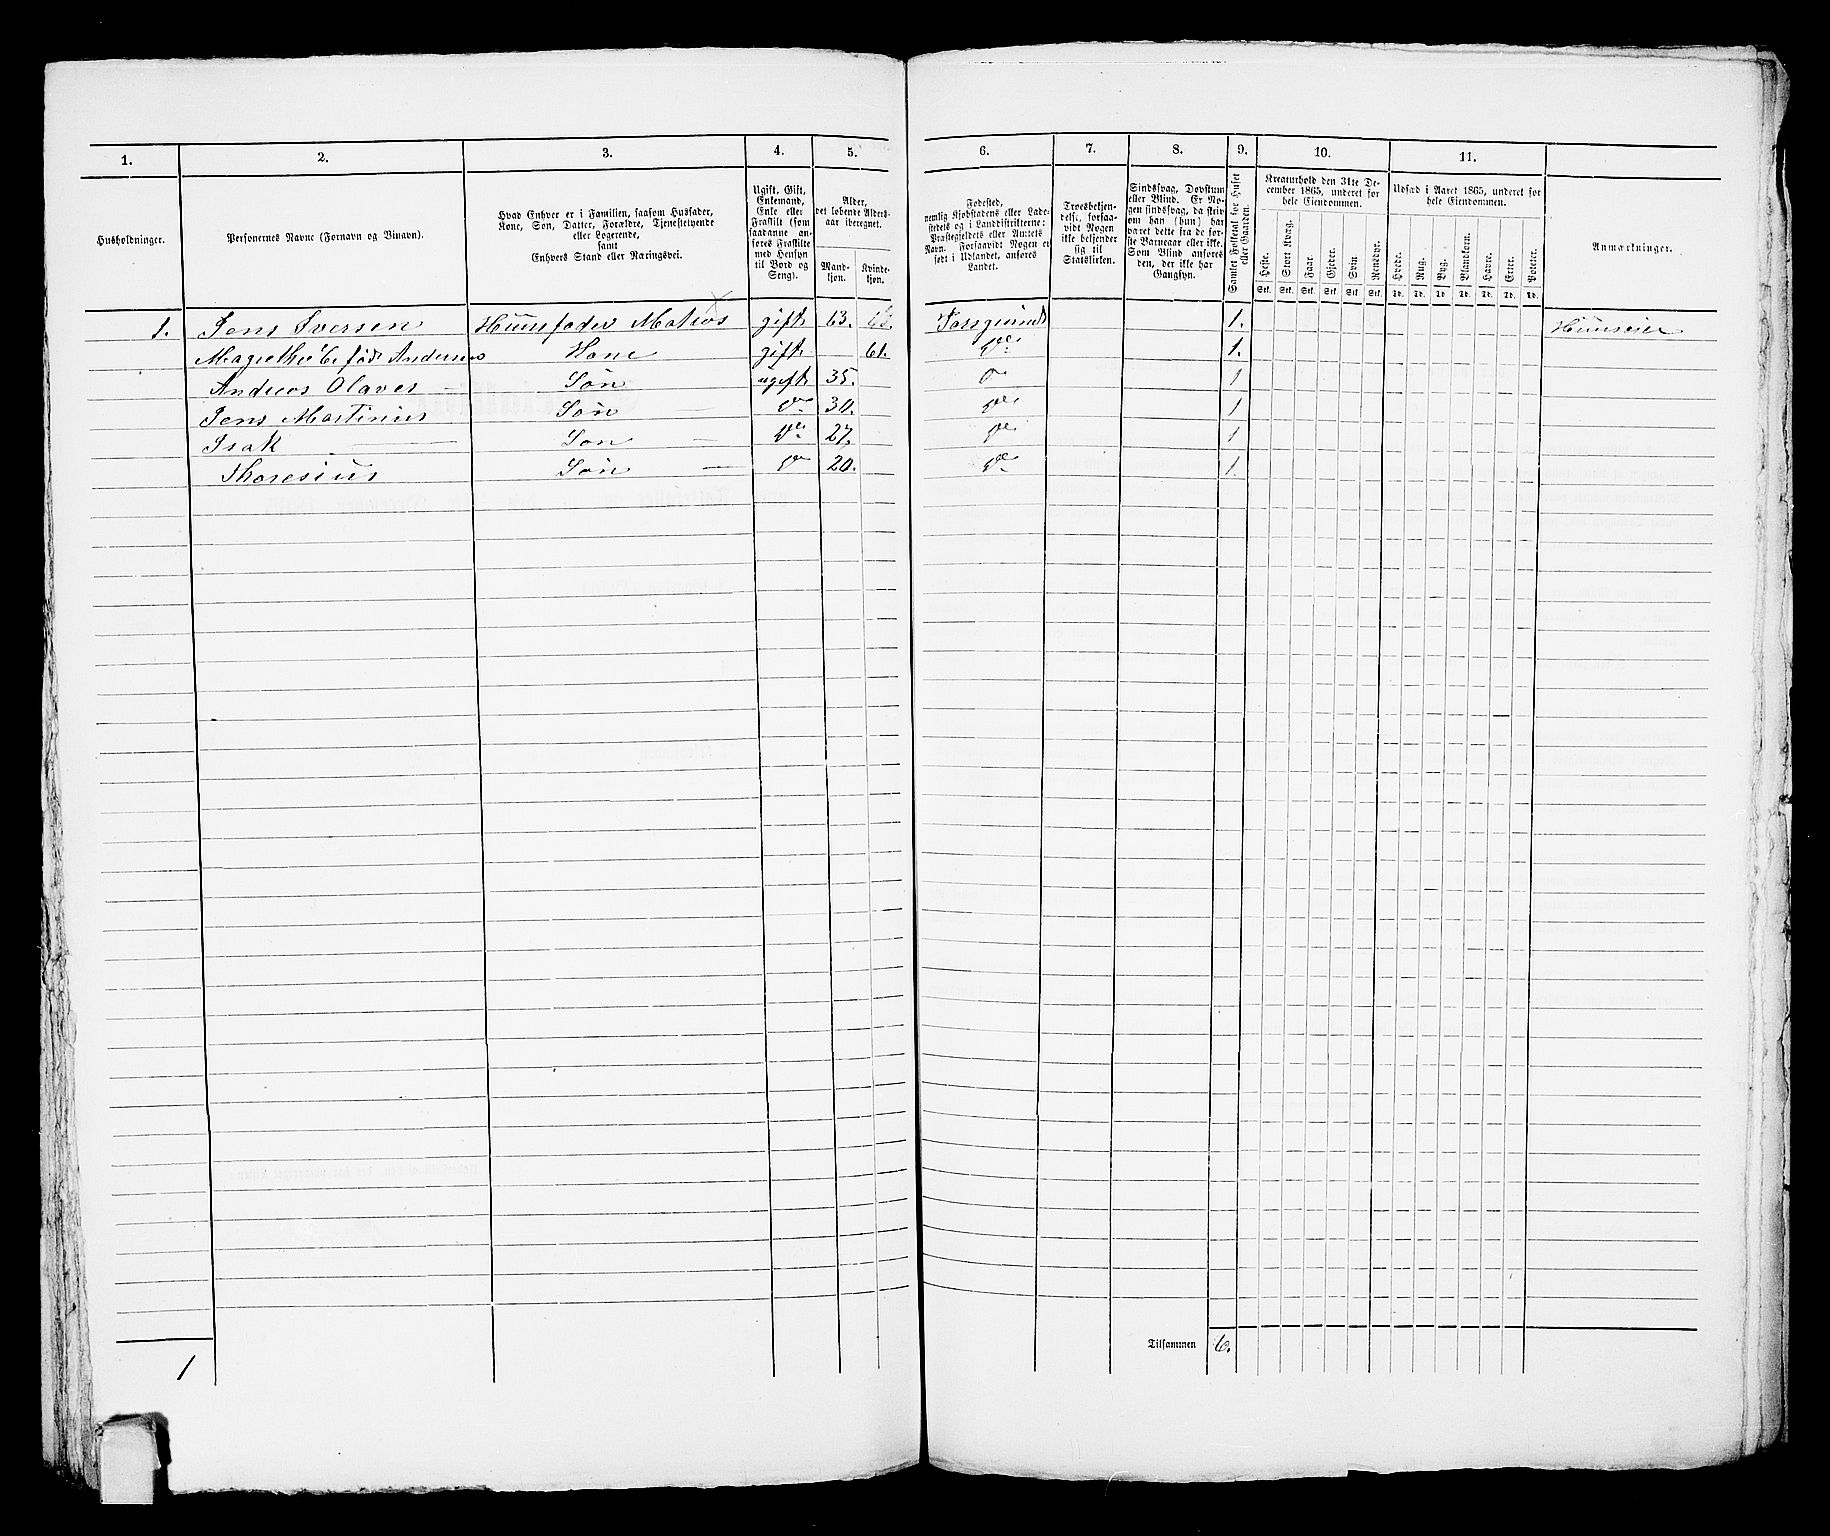 1. 2. 3. 4. 5. 6. 7. 8. 9. 10. 11.
Husholdninger.
Personernes Navne (Fornavn og Tilnavn).
Hvad Enhver er i Familien, saasom Husfader,
Kone, Søn, Datter, Forældre, Tjenestetyende
eller Logerende,
samt
Enhvers Stand eller Næringsvei.
Ugift, Gift,
Enkemand,
Enke eller
Fraskilt (som
saadanne an-
føres Fraskilte
med Hensyn
til Bord og
Seng).
Alder,
det løbende Alders-
aar iberegnet.
Mand-
kjøn.
Kvinde-
kjøn.
Fødested,
nemlig Kjøbstadens eller Lade-
stedets og i Landdistrikterne:
Præstegjeldets eller Amtets
Navn. Forsaavidt Nogen er
født i Udlandet, anføres
Landet.
Troesbekjen-
delse, forsaa-
vidt Nogen
ikke bekjender
sig til
Statskirken.
Sindssvag, Døvstum
eller Blind. Er No-
gen sindssvag, da skriv
om han (hun) har
været dette fra de før-
ste Barneaar eller ikke.
Som Blind anføres
den, der ikke har
Gangsyn.
Samlet Folketal for Huset
eller Gaarden.
Kreaturhold den 31te De-
cember 1865, underet for
hele Eiendommen.
Heste. Stort Kvæg. Faar. Gjeder. Svin Rensdyr.
Stk. Stk. Stk. Stk. Stk. Stk.
Udsæd i Aaret 1865, underet for
hele Eiendommen.
Hvede. Rug. Byg. Blandkorn. Havre. Erter. Poteter.
Td. Td. Td. Td. Td. Td. Td.
Anmærkninger.
1. Jens Iversen Huusfader Matros gift 63. Porsgrund 1. Huuseier
født Anderss Kone gift 61. Do 1.
Andreas Olaves Søn ugift 35. Do 1
Jens Martinius Søn Do 30. Do 1
Isak Søn Do 27. Do 1
Thoresius Søn Do 20. Do 1.
Tilsammen 6.
1